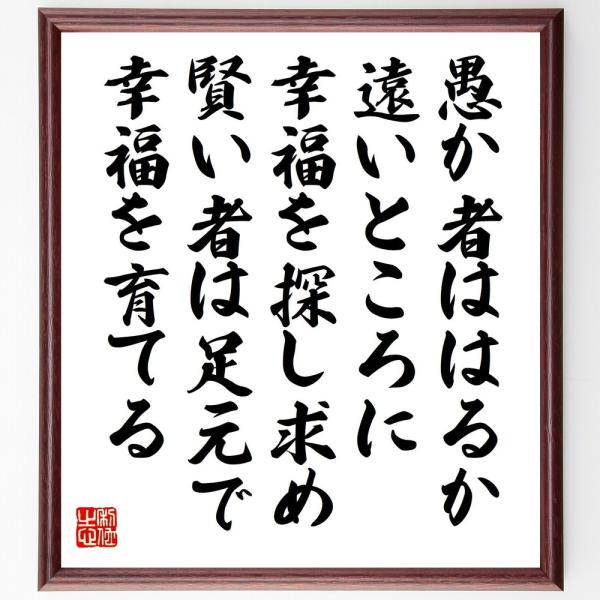 愚か者ははるか
遠いところに
幸福を探し求め
賢い者は足元で
幸福を育てる